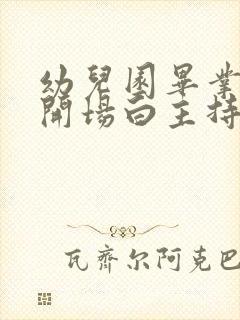 幼兒園畢業
開場白主持
瓦齊尔阿克巴